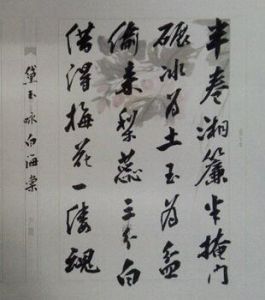 半卷湘簾半掩門
碾冰为土玉为盆
偷来梨蕊三分白
借得梅花一缕魂
黛玉咏白海棠